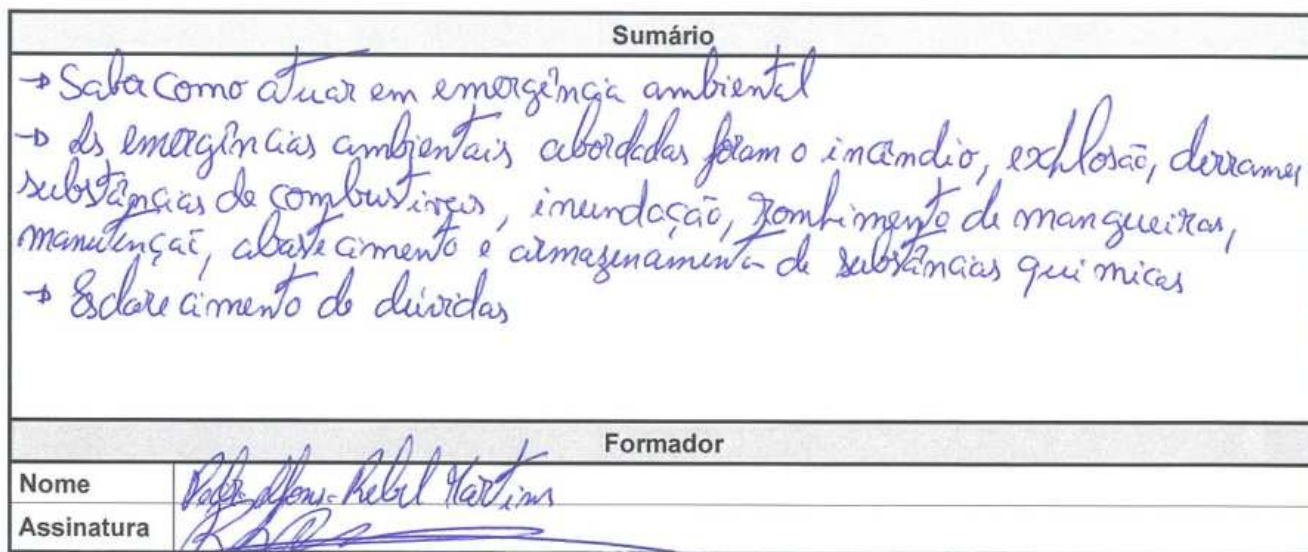 Sumário
→ Saber como atuar em emergência ambiental
→ As emergências ambientais abordadas foram o incêndio, explosão, derrames
substâncias de combustíveis, inundação, rombimento de mangueiras,
manutenção, abastecimento e armazenamento de substâncias químicas
→ Esclarecimento de dúvidas
Formador
Nome Martins
Assinatura